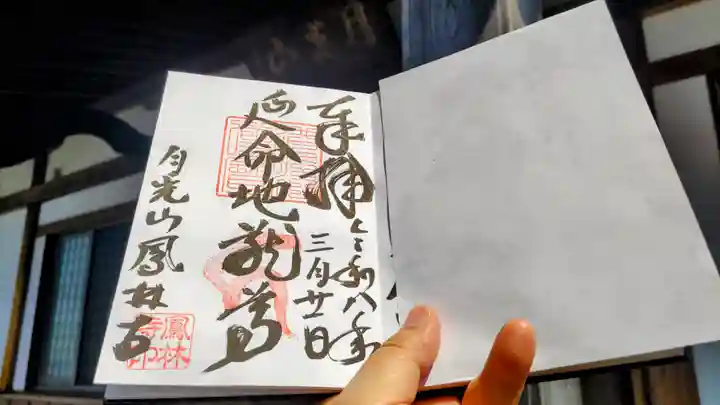 奉拝
令和八年
三月廿一日
延命地蔵尊
月光山鳳林寺
鳳林
寺印